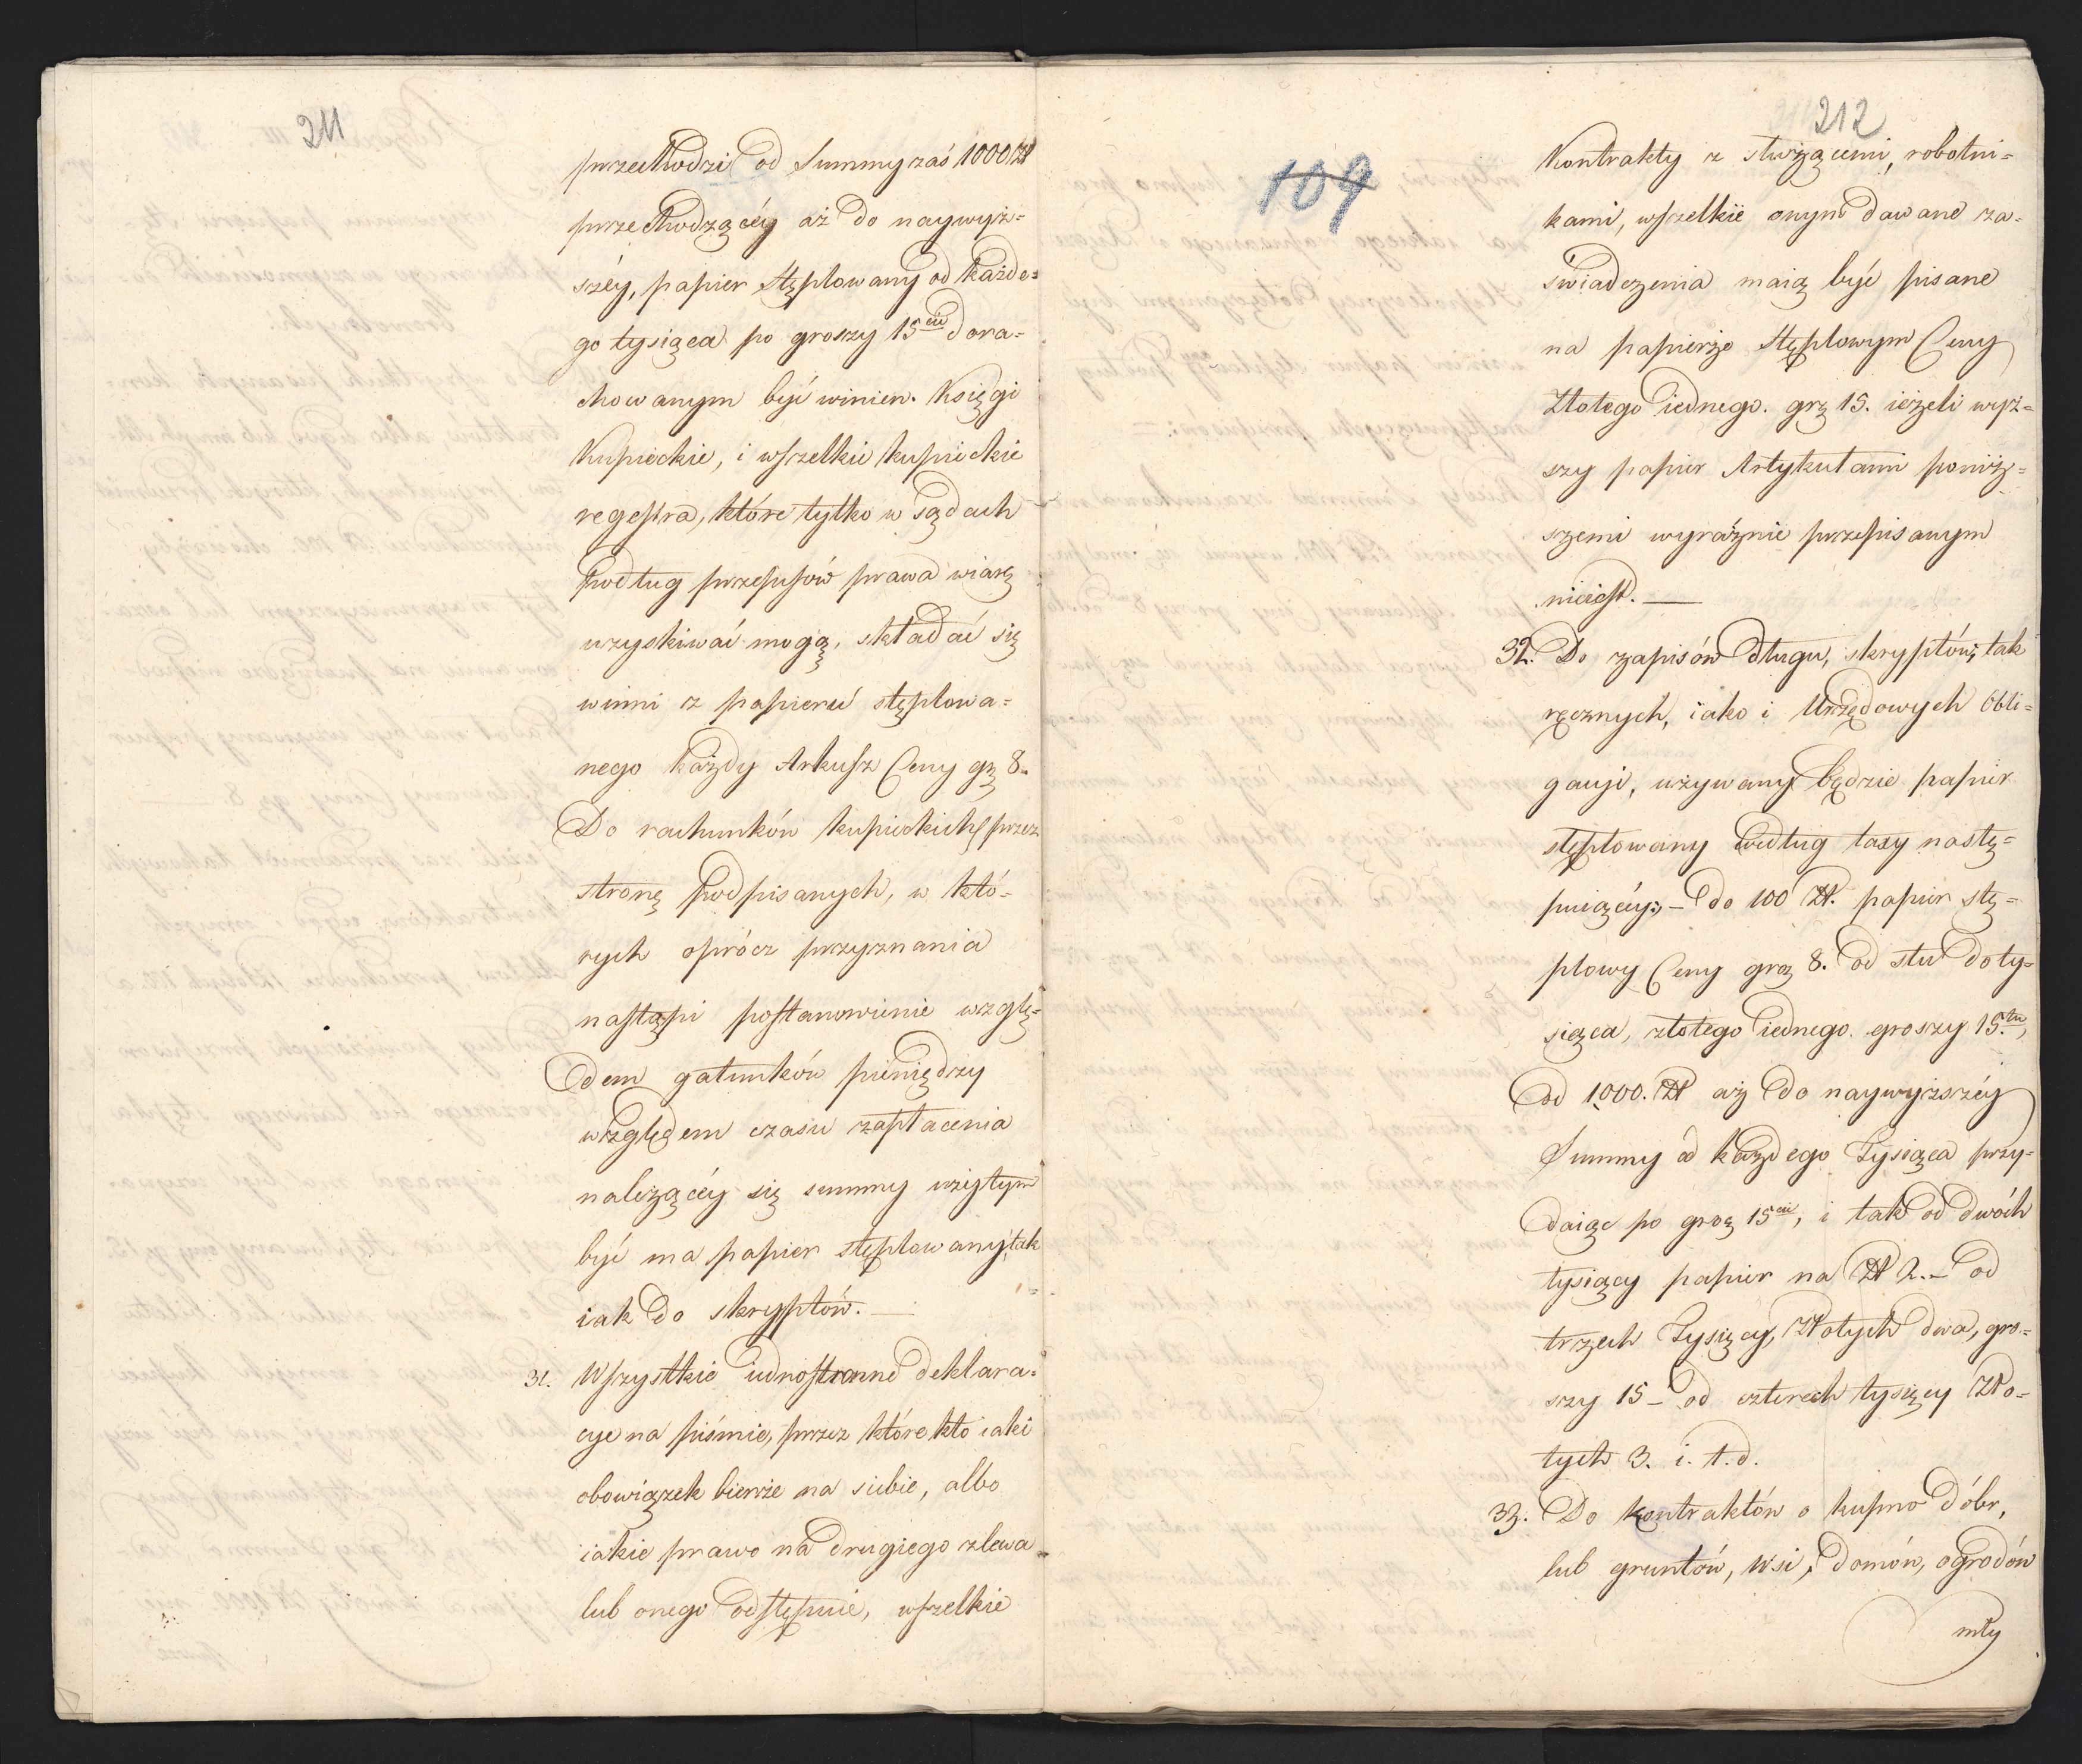 211
przechodzi od Summy zaś 1000 Zł
przechodzącéy aż do naywyż=
széy, papier stęplowany od każde=
go tysiąca po groszy 15cie dora=
chowanym być winien. Księgi
Kupieckie, i wszelkie kupieckie
regestra, które tylko w sądach
podług przepisów prawa wiarę
uzyskiwać mogą, składać się
winni z papieru stęplowa=
nego każdy Arkusz Ceny gr 8.
Do rachunków kupieckich przez
stronę podpisanych, w któ=
rych oprócz przyznania
nastąpi postanowienie wzglę=
dem gatunków pieniędzy
względem czasu zapłacenia
należącéy się summy wziętym
być ma papier stęplowany, tak
iak do skryptów. —
31. Wszystkie iednostronne deklara=
cye na piśmie, przez które kto iaki
obowiązek bierze na siebie, albo
iakie prawo na drugiego zlewa
lub onego odstępuie, wszelkie
109
212
Kontrakty z służącemi, robotni=
kami, wszelkie onym dawane za=
świadczenia maią być pisane
na papierze stęplowym Ceny
Złotego iednego. gr 15. ieżeli wyż=
szy papier Artykułami poniż=
szemi wyraźnie przepisanym
nieiest. —
32. Do zapisów długu, skryptów, tak
ręcznych, iako i Urzędowych Obli=
gacyi, używany będzie papier
stęplowany według taxy nastę=
puiącéy: – do 100 Zł. papier stę=
plowy Ceny gro 8. od stu do ty=
siąca, złotego iednego. groszy 15tu,
od 1000. Zł aż do naywyższéy
Summy od każdego Tysiąca przy=
daiąc po gro 15cie, i tak od dwóch
tysięcy papier na Zł 2. – od
trzech Tysięcy, Złotych dwa, gro=
szy 15 – od czterech tysięcy Zło=
tych 3. i. t. d.
33. Do kontraktów o kupno dóbr,
lub gruntów, wsi, domów, ogrodów
mły